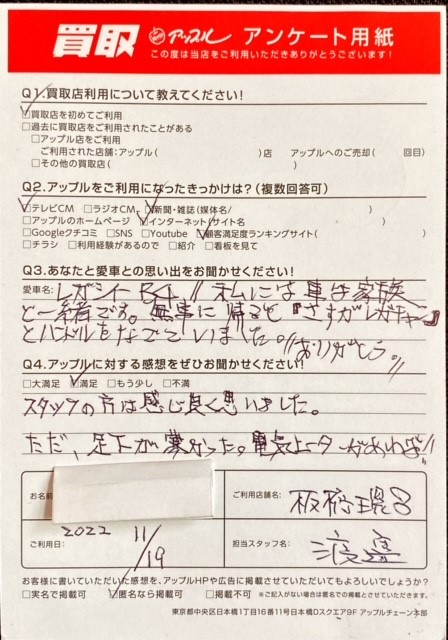 買取 アップル アンケート用紙
この度は当店をご利用いただきありがとうございます!
Q1.買取店利用について教えてください!
☑買取店を初めてご利用
□過去に買取店をご利用されたことがある
□アップル店をご利用
ご利用された店舗:アップル( )店 アップルへのご売却( 回目)
□その他の買取店( )
Q2.アップルをご利用になったきっかけは?(複数回答可)
☑テレビCM □ラジオCM ☑新聞・雑誌(媒体名/ )
□アップルのホームページ ☑インターネット/サイト名
□Googleクチコミ □SNS □Youtube ☑顧客満足度ランキングサイト( )
□チラシ □利用経験があるので □紹介 □看板を見て
Q3.あなたと愛車との思い出をお聞かせください!
愛車名/レガシィ B4 // 私には車は家族
と一緒です。無事に帰ると『さすがレガシィ』
とハンドルをなでていました。//ありがとう。//
Q4.アップルに対する感想をぜひお聞かせください!
□大満足 ☑満足 □もう少し □不満
スタッフの方は感じ良く思いました。
ただ、足下が寒かった。電気ヒーターがあれば!!
お名前
ご利用店舗名: 板橋環8
ご利用日: 2022 11/19
担当スタッフ名: 渡邊
お客様に書いていただいた感想を、アップルHPや広告に掲載させていただいてもよろしいでしょうか?
□実名で掲載可 ☑匿名なら掲載可 □掲載不可 ※ご記入がない場合は匿名での掲載とさせていただきます。
東京都中央区日本橋1丁目16番11号日本橋Dスクエア9F アップルチェーン本部